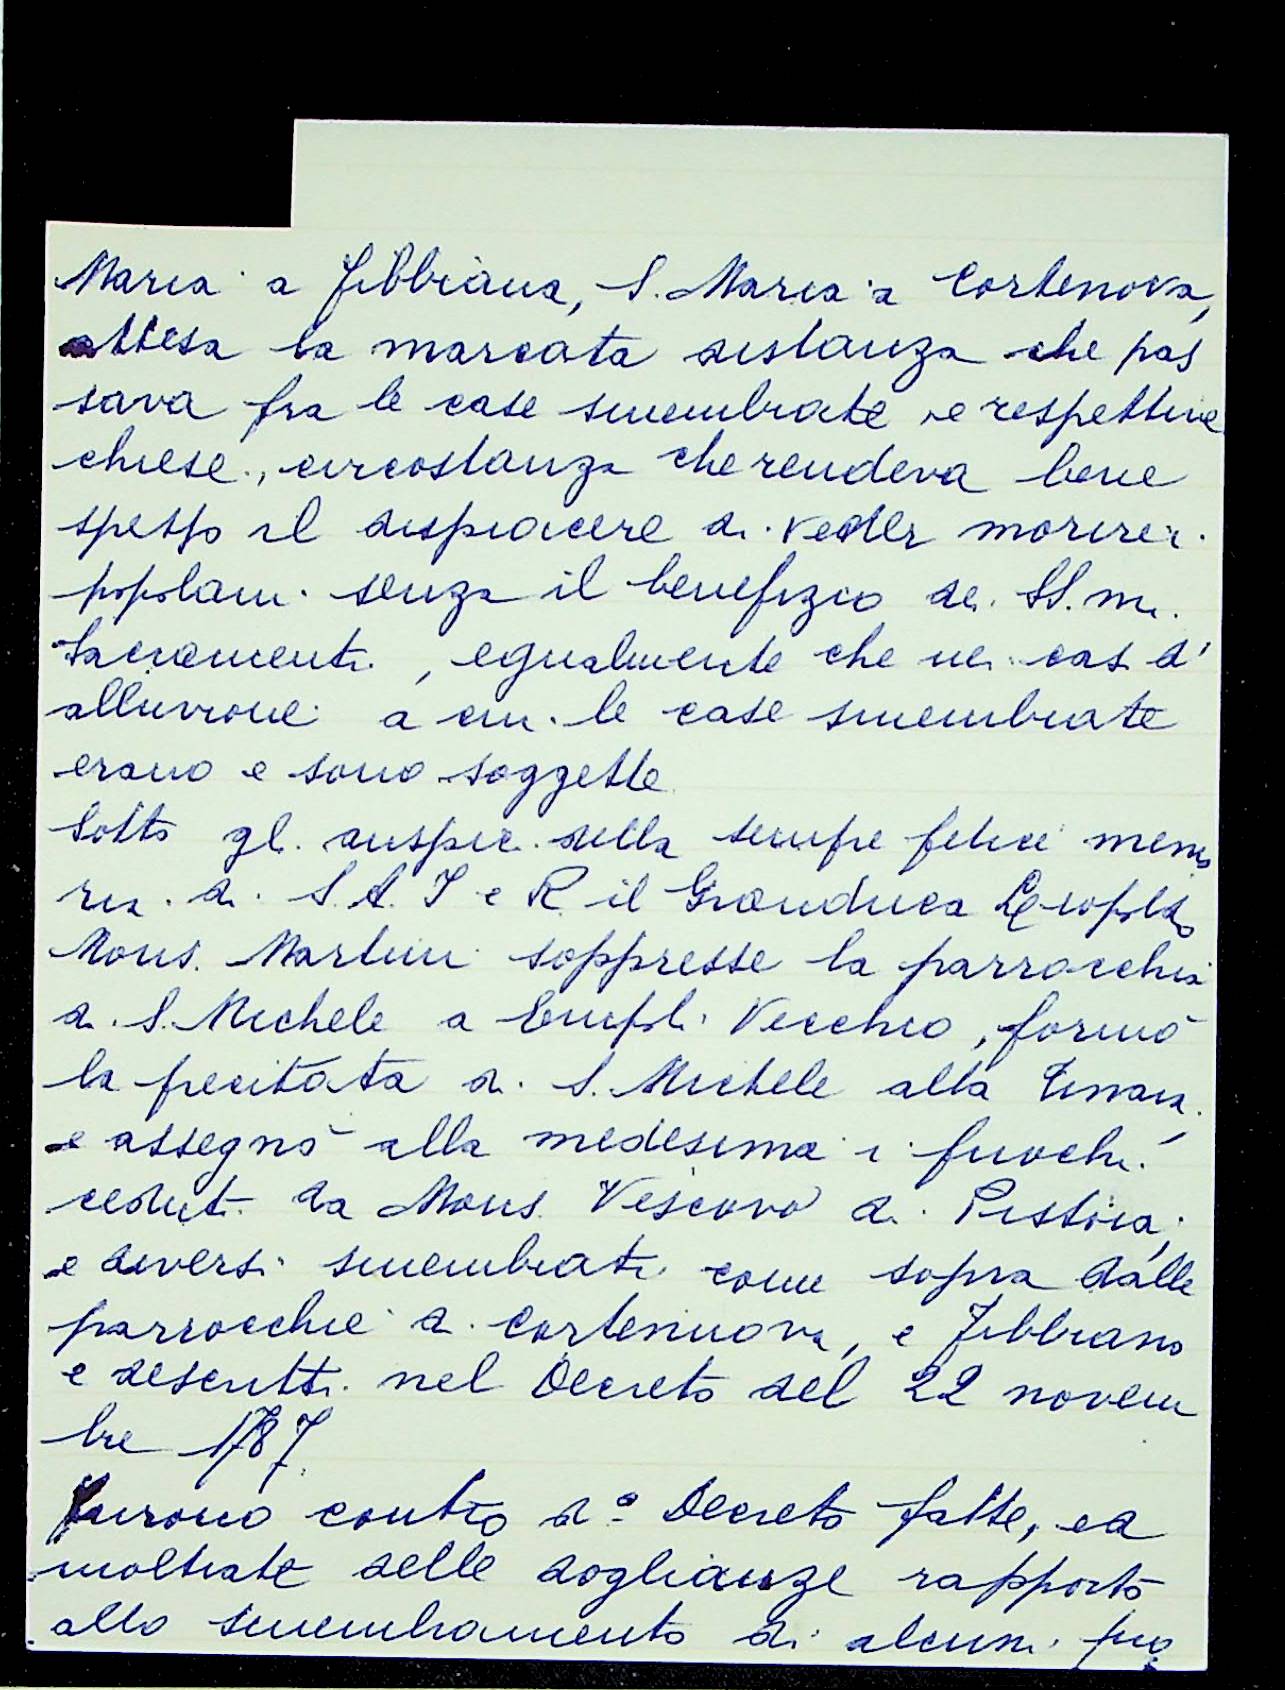 Maria a Fibbiana, S. Maria a Cortenova,
attesa la marcata distanza che pas
sava fra le case smembrate e respettive
chiese, circostanza che rendeva bene
spesso il dispiacere di veder morire i
popolani senza il benefizio dei SS.mi
Sacramenti, egualmente che nei casi d'
alluvione a cui le case smembrate
erano e sono soggette
Sotto gli auspici della sempre felice memo
ria di S.A.I e R. il Granduca Leopoldo
Mons. Martini soppresse la parrocchia
di S. Michele a Empoli Vecchio, formò
la precitata di S. Michele alla Tinaia,
e assegnò alla medesima i fuochi
ceduti da Mons. Vescovo di Pistoia,
e diversi smembrati come sopra dalle
parrocchie di Cortenuova, e Fibbiano
e descritti nel Decreto del 22 novem
bre 1787.
Furono contro d.º Decreto fatte, ed
inoltrate delle doglianze rapporto
allo smembramento di alcuni fuo